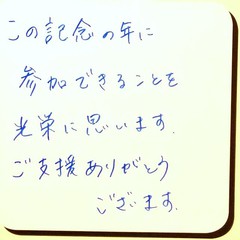 この記念の年に
参加できることを
光栄に思います.
ご支援ありがとう
ございます.